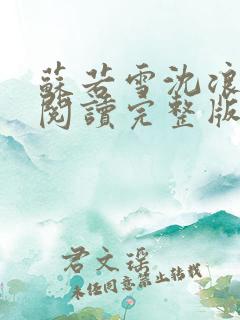 蘇若雪沈浪
閱讀完整版
君文瑤
未任同意禁止转載